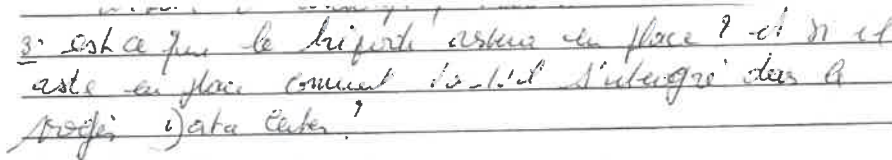 3. est ce que le briporte restera en place ? et si il
reste en place comment va-t-il s'integré dans le
projet Data Center ?